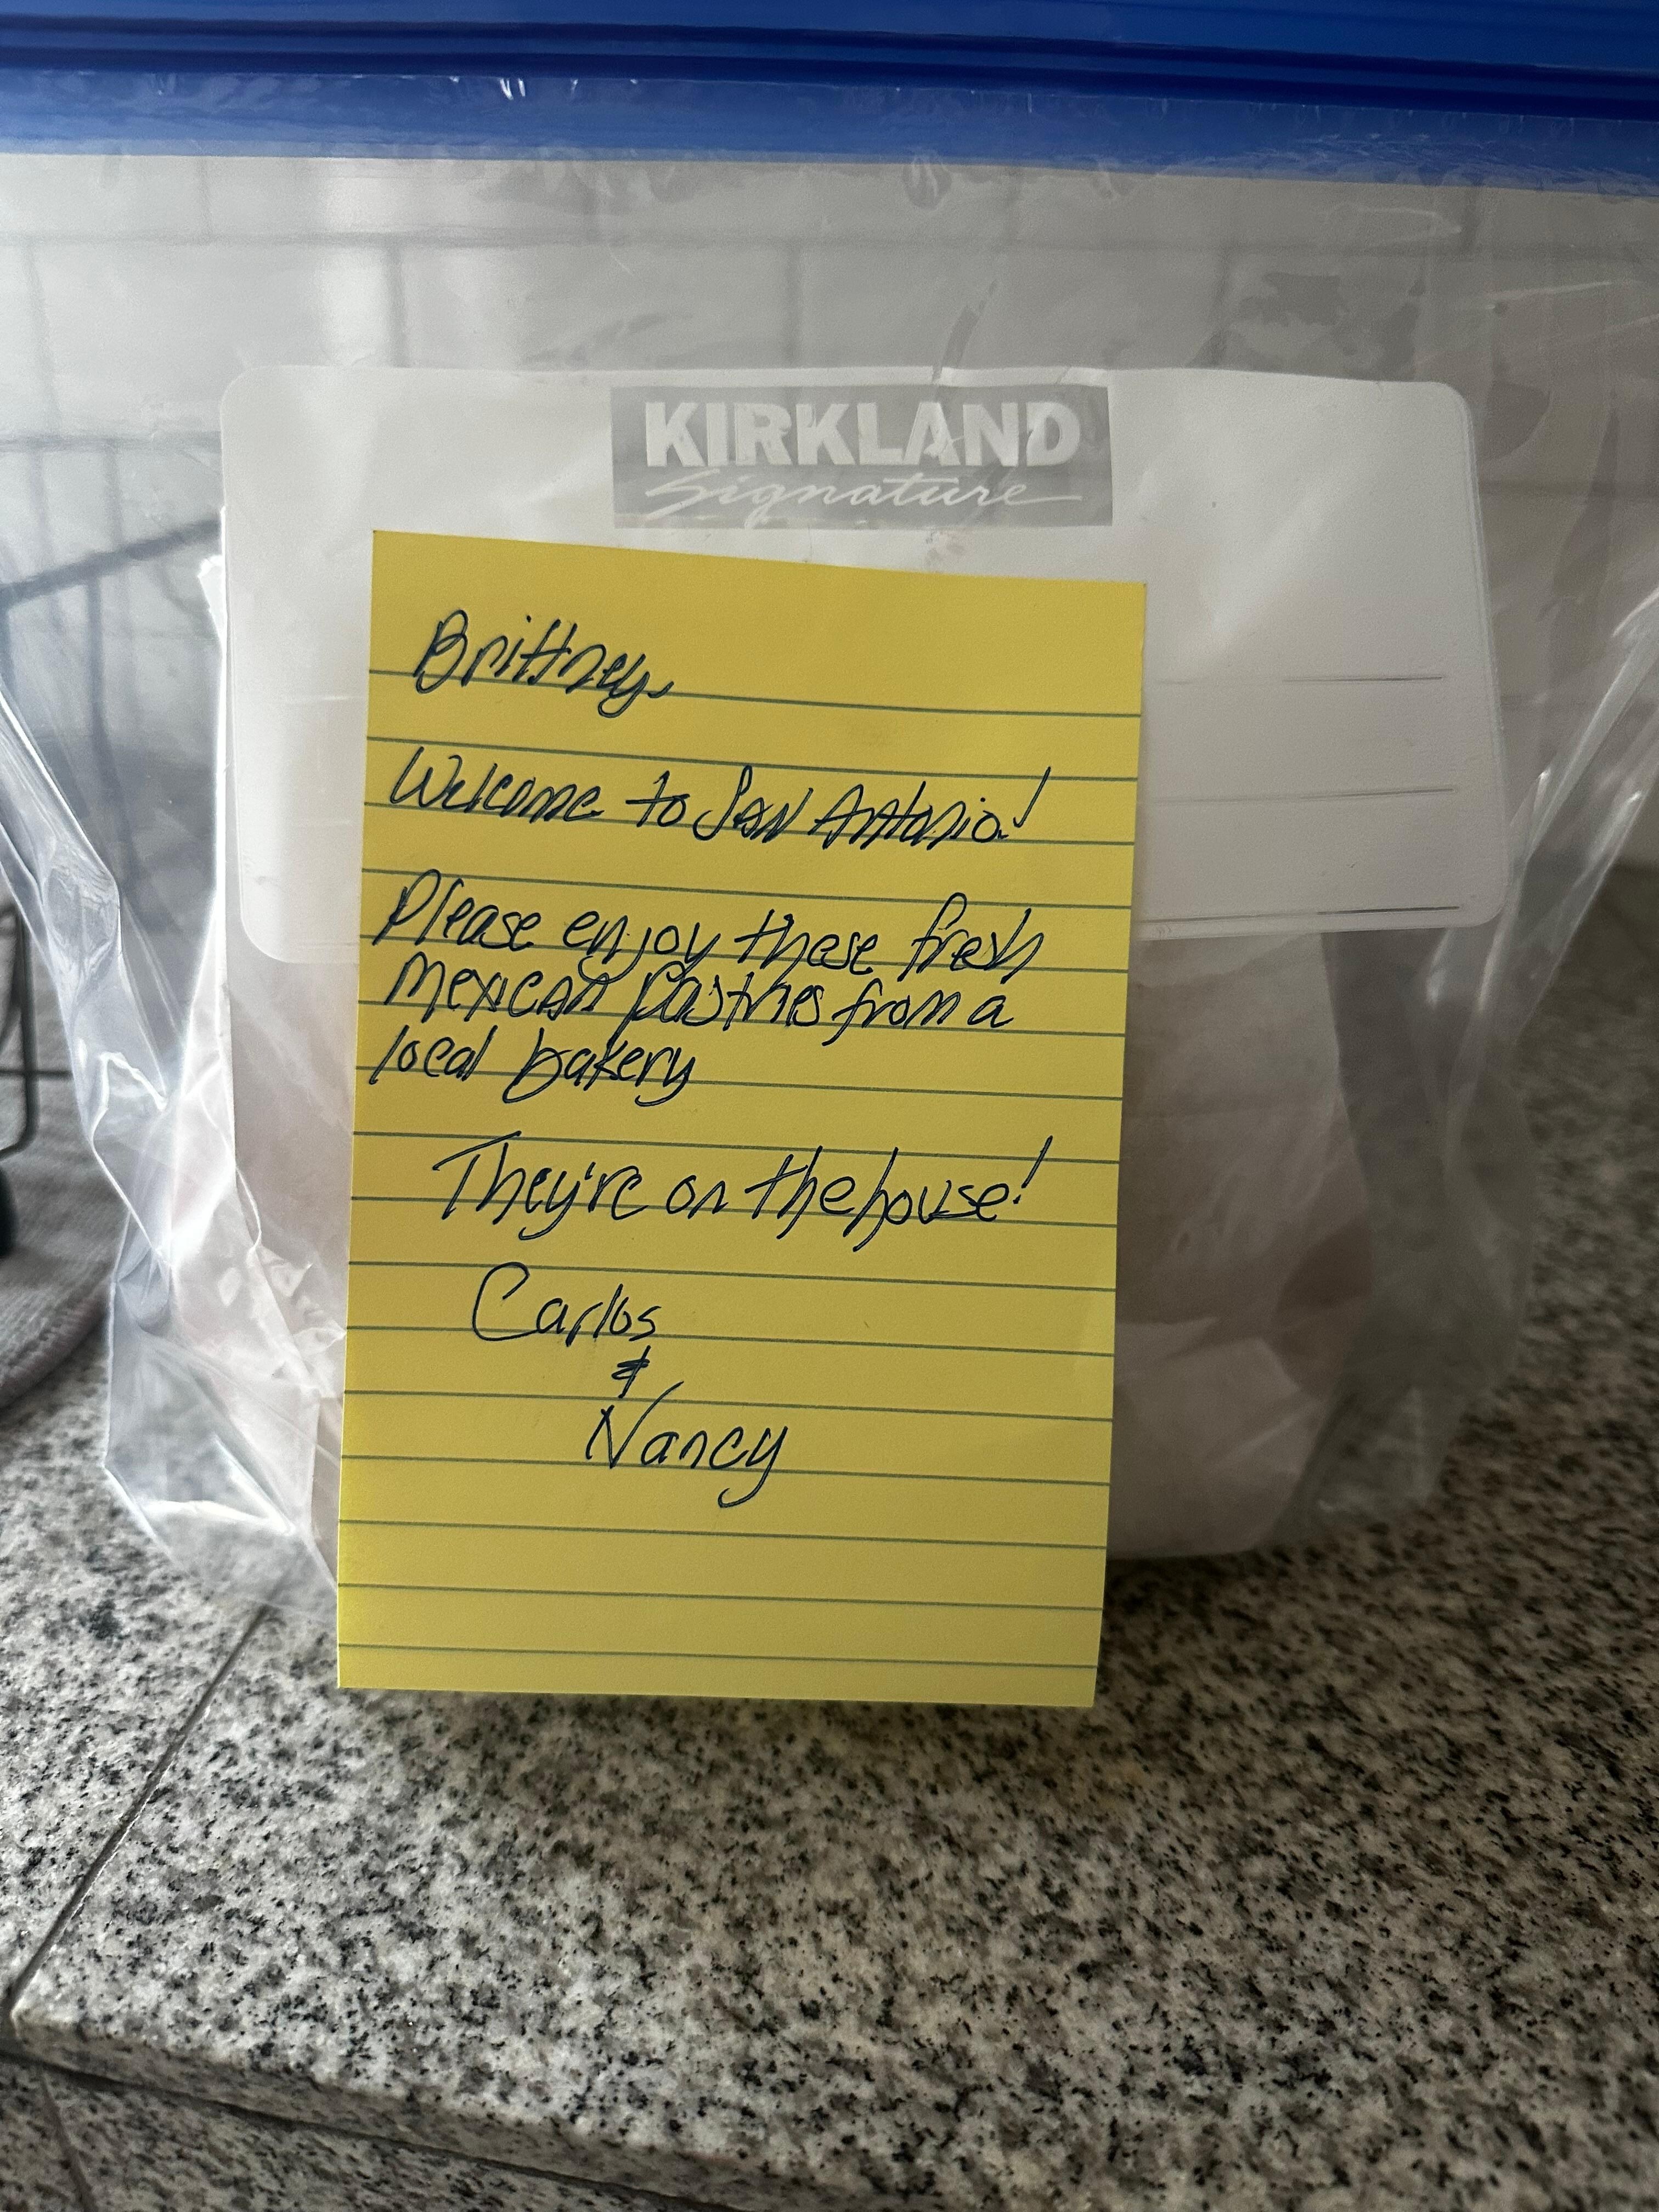 KIRKLAND
Signature
Brittney,
Welcome to San Antonio!
Please enjoy these fresh
Mexican Pastries from a
local bakery
They're on the house!
Carlos
&
Nancy